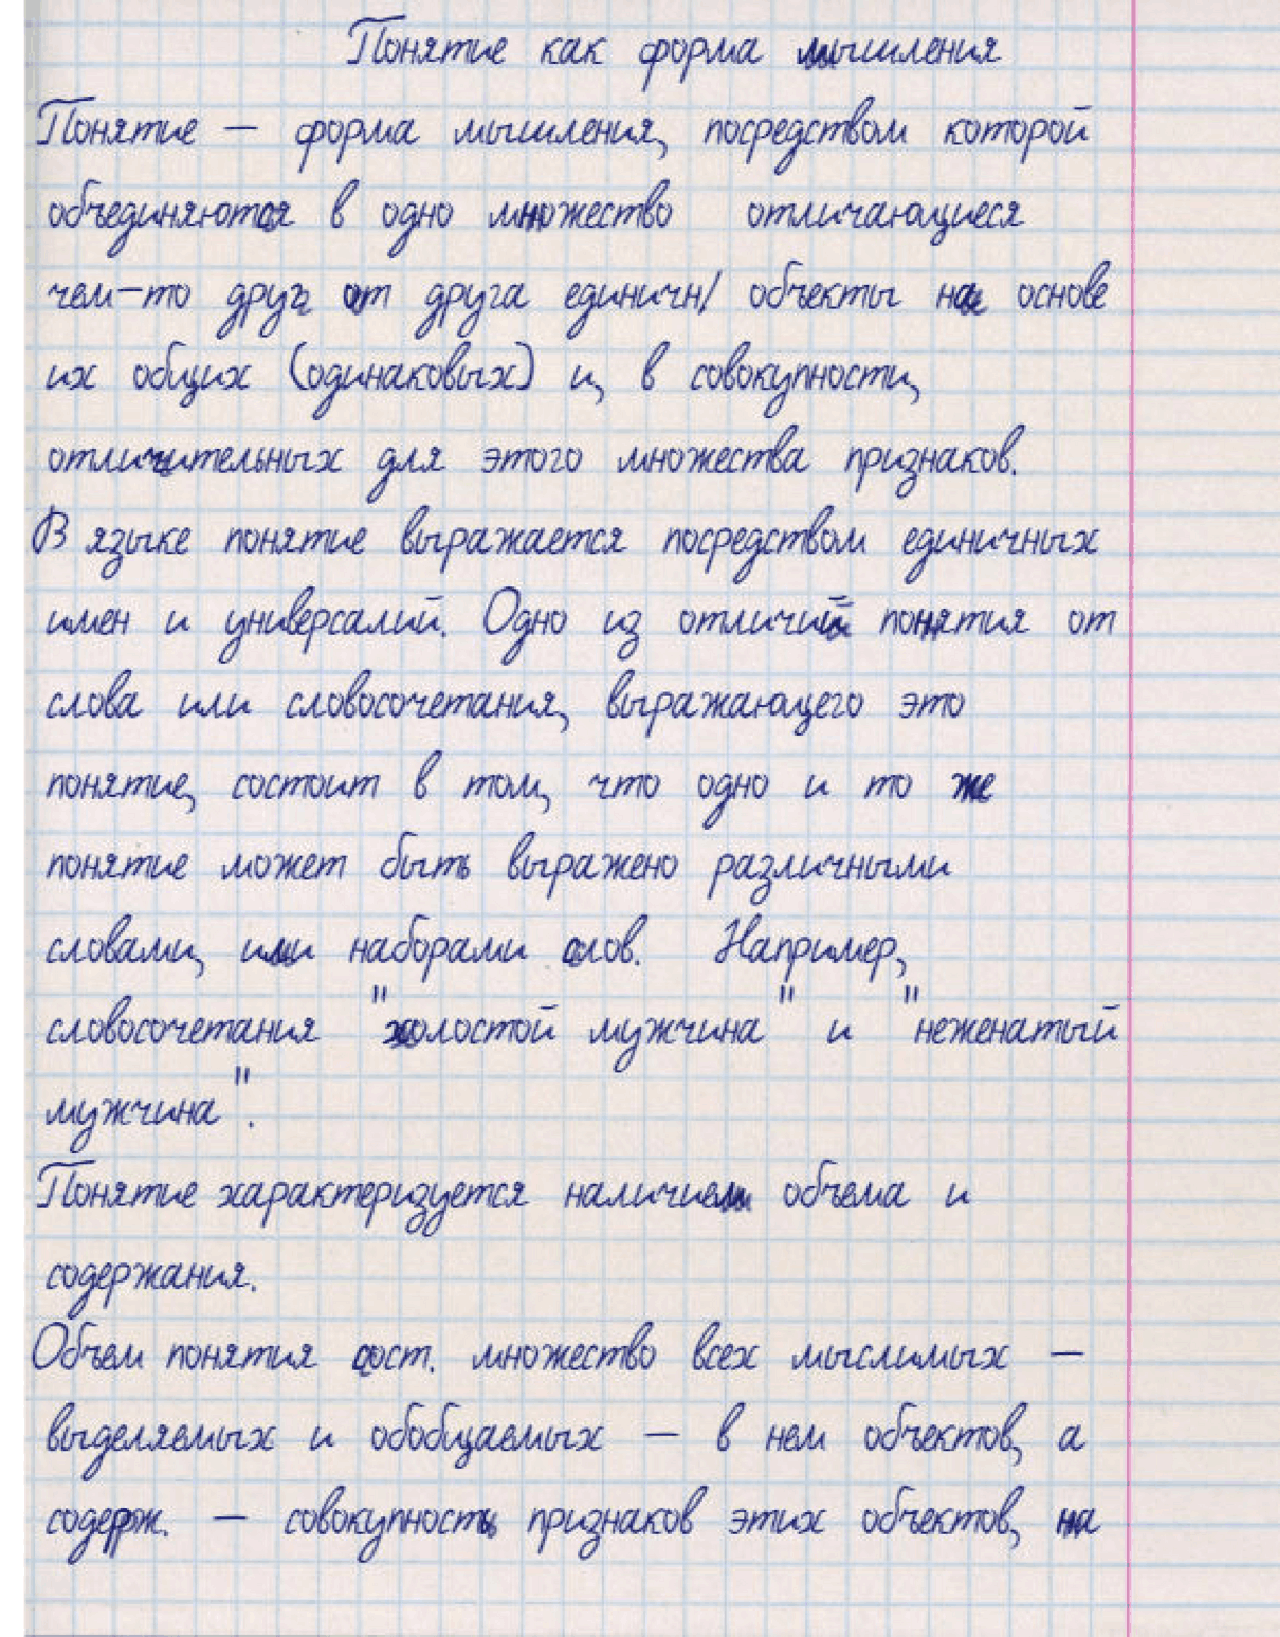 Понятие как форма мышления
Понятие — форма мышления, посредством которой
объединяются в одно множество отличающиеся
чем-то друг от друга единичн/ объекты на основе
их общих (одинаковых) и, в совокупности,
отличительных для этого множества признаков.
В языке понятие выражается посредством единичных
имен и универсалий. Одно из отличий понятия от
слова или словосочетания, выражающего это
понятие, состоит в том, что одно и то же
понятие может быть выражено различными
словами, или наборами слов. Например,
словосочетания "холостой мужчина" и "неженатый
мужчина".
Понятие характеризуется наличием объема и
содержания.
Объем понятия сост. множество всех мыслимых —
выделяемых и обобщаемых — в нем объектов, а
содерж. — совокупность признаков этих объектов, на